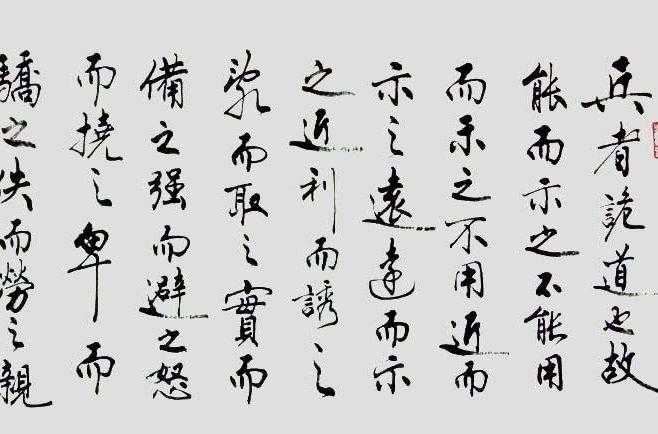 兵者詭道也故
能而示之不能用
而示之不用近而
示之遠遠而示
之近利而誘之
亂而取之實而
備之强而避之怒
而撓之卑而
驕之佚而勞之親